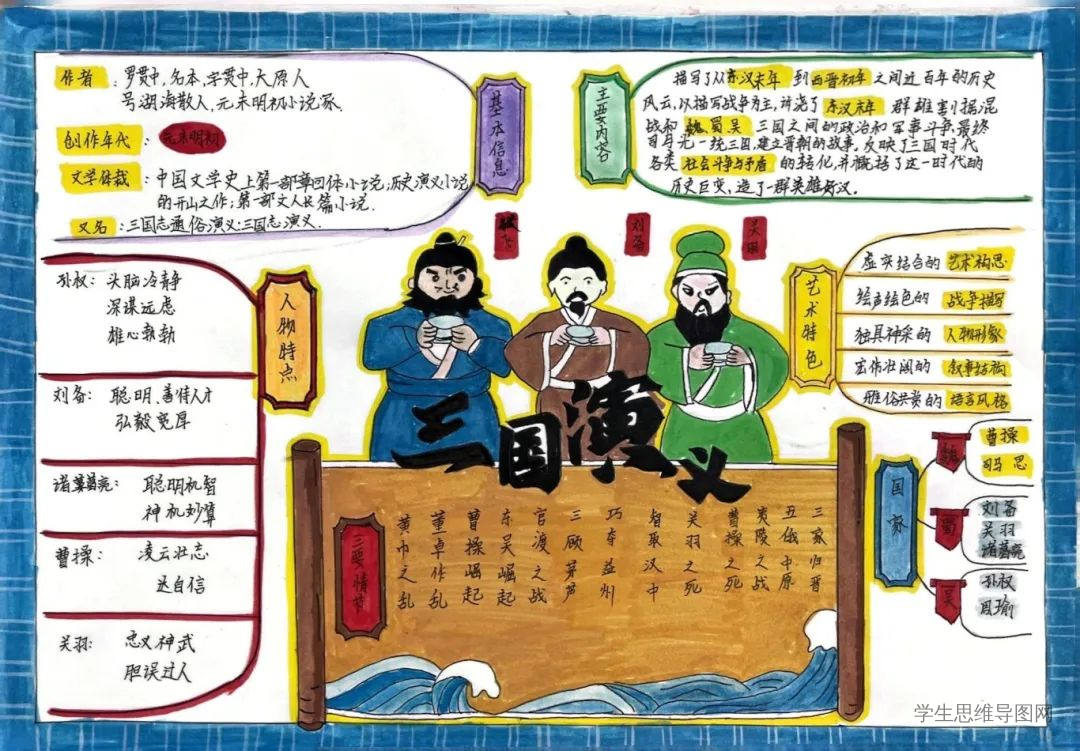 作者：罗贯中，名本，字贯中，太原人
号湖海散人，元末明初小说家.
创作年代：元末明初
文学体裁：中国文学史上第一部章回体小说；历史演义小说
的开山之作；第一部文人长篇小说.
又名：三国志通俗演义.三国志演义.
基本信息
主要内容
描写了从东汉末年到西晋初年之间近百年的历史
风云，以描写战争为主，诉说了东汉末年群雄割据混
战和魏蜀吴三国之间的政治和军事斗争最终
司马元一统三国，建立晋朝的故事。反映了三国时代
各类社会斗争与矛盾的转化，并概括了这一时代的
历史巨变，造了一群英雄好汉。
张飞
刘备
关羽
人物特点
孙权：头脑冷静
深谋远虑
雄心勃勃
刘备：聪明、善待人才
弘毅宽厚
诸葛亮：聪明机智
神机妙算
曹操：凌云壮志
达自信
关羽：忠义神武
胆误过人
艺术特色
虚实结合的艺术构思
绘声绘色的战争描写
独具神采的人物形象
宏伟壮阔的叙事结构
雅俗共赏的语言风格
三国演义
三要情节
黄巾之乱
董卓作乱
曹操崛起
东吴崛起
官渡之战
三顾茅庐
巧夺益州
智取汉中
关羽之死
曹操之死
夷陵之战
五伐中原
三家归晋
国家
魏
曹操
司马
蜀
刘备
关羽
诸葛亮
吴
孙权
周瑜
学生思维导图网